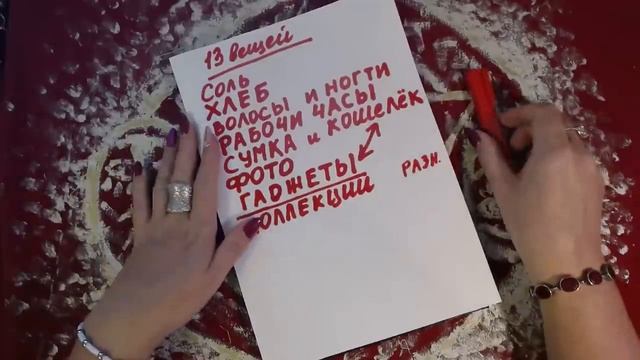 13 вещей
СОЛЬ
ХЛЕБ
ВОЛОСЫ и НОГТИ
РАБОЧИ ЧАСЫ
СУМКА и КОШЕЛЁК
ФОТО
ГАДЖЕТЫ РАЗН.
КОЛЛЕКЦИИ